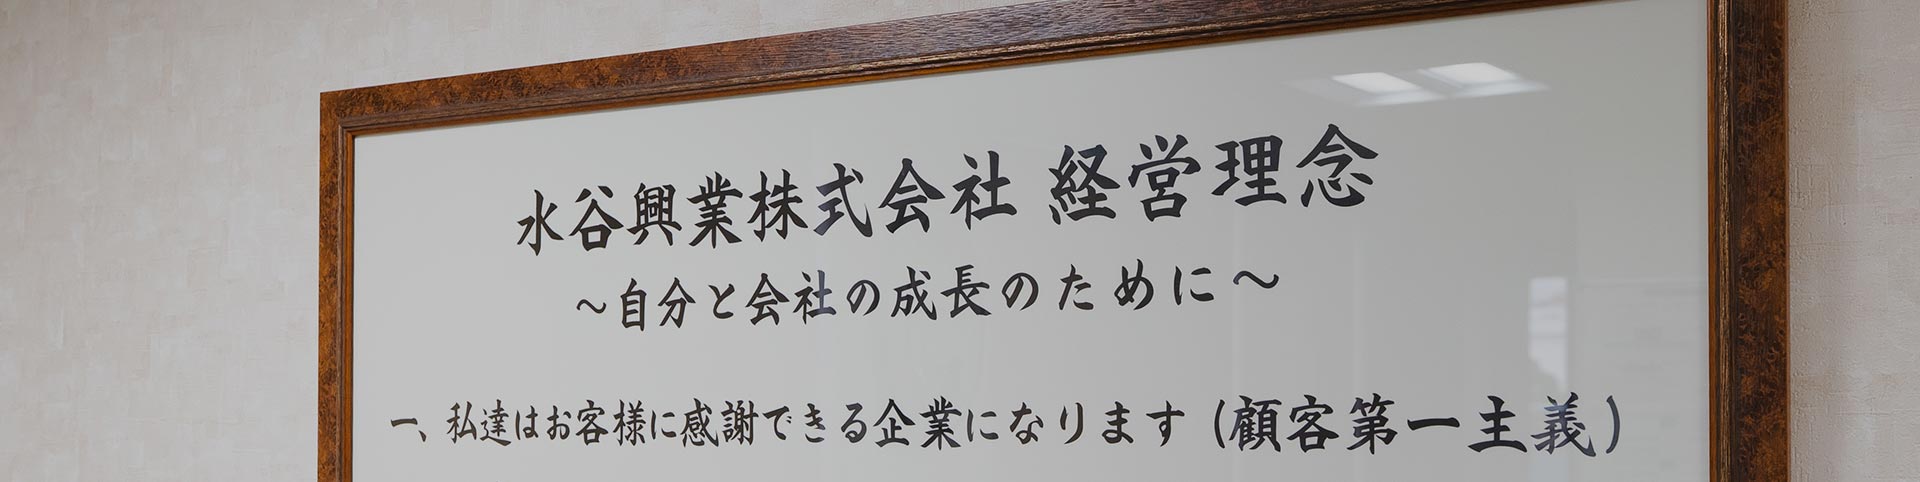 水谷興業株式会社 経営理念
～自分と会社の成長のために～
一、私達はお客様に感謝できる企業になります(顧客第一主義)